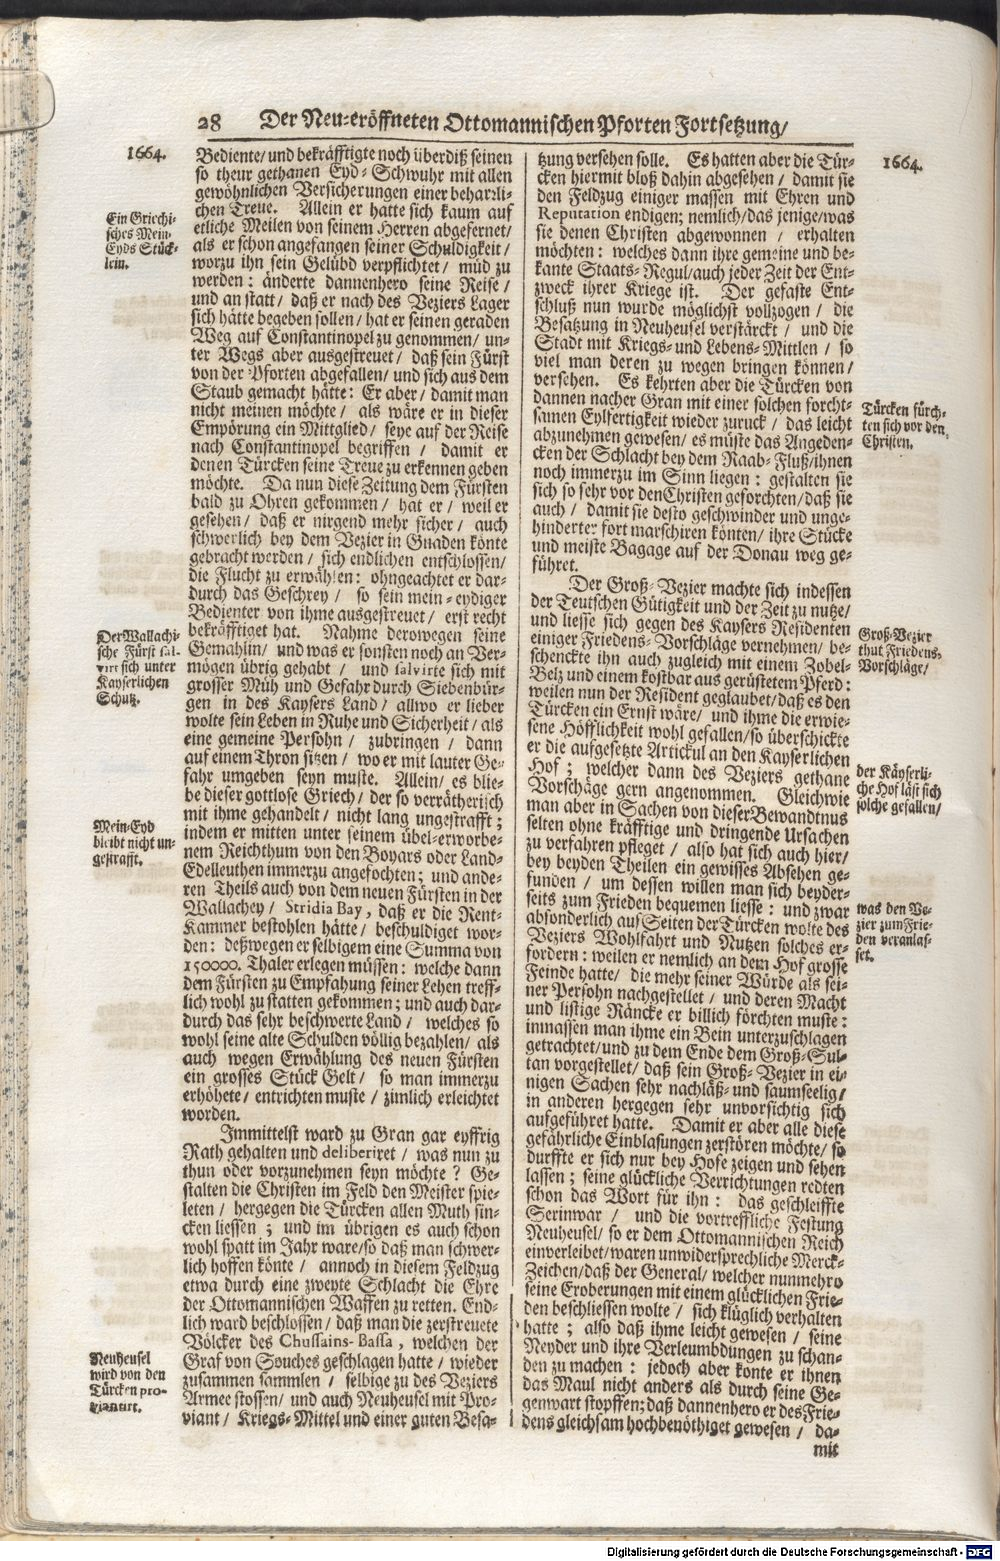 28 Der Neu-eröffneten Ottomannischen Pforten Fortsetzung/
1664.
Bediente/ und bekräfftigte noch überdiß seinen
so theur gethanen Eyd-Schwuhr mit allen
gewöhnlichen Versicherungen einer beharzli-
chen Treue. Allein er hatte sich kaum auf
etliche Meilen von seinem Herren abgefernet/
als er schon angefangen seiner Schuldigkeit/
worzu ihn sein Gelübd verpflichtet/ müd zu
werden: änderte dannenhero seine Reise/
und an statt/ daß er nach des Veziers Lager
sich hätte begeben sollen/ hat er seinen geraden
Weg auf Constantinopel zu genommen/ un-
ter Wegs aber ausgestreuet/ daß sein Fürst
von der Pforten abgefallen/ und sich aus dem
Staub gemacht hätte: Er aber/ damit man
nicht meinen möchte/ als wäre er in dieser
Empörung ein Mittglied/ seye auf der Reise
nach Constantinopel begriffen/ damit er
denen Türcken seine Treue zu erkennen geben
möchte. Da nun diese Zeitung dem Fürsten
bald zu Ohren gekommen/ hat er/ weil er
gesehen/ daß er nirgend mehr sicher/ auch
schwerlich bey dem Vezier in Gnaden könte
gebracht werden/ sich endlichen entschlossen/
die Flucht zu erwählen: ohngeachtet er dar-
durch das Geschrey/ so sein mein-eydiger
Bedienter von ihme ausgestreuet/ erst recht
bekräfftiget hat. Nahme derowegen seine
Gemahlin/ und was er sonsten noch an Ver-
mögen übrig gehabt/ und salvirte sich mit
grosser Müh und Gefahr durch Siebenbür-
gen in des Kaysers Land/ allwo er lieber
wolte sein Leben in Ruhe und Sicherheit/ als
eine gemeine Persohn/ zubringen/ dann
auf einem Thron sitzen/ wo er mit lauter Ge-
fahr umgeben seyn muste. Allein/ es blie-
be dieser gottlose Griech/ der so verrätherisch
mit ihme gehandelt/ nicht lang ungestrafft;
indem er mitten unter seinem übel-erworbe-
nem Reichthum von den Boyars oder Land-
Edelleuthen immerzu angefochten; und ande-
ren Theils auch von dem neuen Fürsten in der
Wallachey/ Stridia Bay, daß er die Rent-
Kammer bestohlen hätte/ beschuldiget wor-
den: deßwegen er selbigem eine Summa von
150000. Thaler erlegen müssen: welche dann
dem Fürsten zu Empfahung seiner Lehen treff-
lich wohl zu statten gekommen; und auch dar-
durch das sehr beschwerte Land/ welches so
wohl seine alte Schulden völlig bezahlen/ als
auch wegen Erwählung des neuen Fürsten
ein grosses Stück Gelt/ so man immerzu
erhöhete/ entrichten muste/ zimlich erleichtet
worden.
Immittelst ward zu Gran gar eyffrig
Rath gehalten und deliberiret/ was nun zu
thun oder vorzunehmen seyn möchte? Ge-
stalten die Christen im Feld den Meister spie-
leten/ hergegen die Türcken allen Muth sin-
cken liessen; und im übrigen es auch schon
wohl spatt im Jahr ware/ so daß man schwer-
lich hoffen könte/ annoch in diesem Feldzug
etwa durch eine zweyte Schlacht die Ehre
der Ottomannischen Waffen zu retten. End-
lich ward beschlossen/ daß man die zerstreuete
Völcker des Chussains-Bassa, welchen der
Graf von Souches geschlagen hatte/ wieder
zusammen sammlen/ selbige zu des Veziers
Armee stossen/ und auch Neuheusel mit Pro-
viant/ Kriegs-Mittel und einer guten Besa-
Ein Griechi-
sches Mein-
Eyds Stück-
lein.
Der Wallachi-
sche Fürst sal-
virt sich unter
Kayserlichen
Schutz.
Mein-Eyd
bleibt nicht un-
gestrafft.
Neuheusel
wird von den
Türcken pro-
viantirt.
1664.
tzung versehen solle. Es hatten aber die Tür-
cken hiermit bloß dahin abgesehen/ damit sie
den Feldzug einiger massen mit Ehren und
Reputation endigen; nemlich/ das jenige/ was
sie denen Christen abgewonnen/ erhalten
möchten: welches dann ihre gemeine und be-
kante Staats-Regul/ auch jeder Zeit der Ent-
zweck ihrer Kriege ist. Der gefaste Ent-
schluß nun wurde möglichst vollzogen/ die
Besatzung in Neuheusel verstärckt/ und die
Stadt mit Kriegs- und Lebens-Mittlen/ so
viel man deren zu wegen bringen können/
versehen. Es kehrten aber die Türcken von
dannen nacher Gran mit einer solchen forcht-
samen Eylfertigkeit wieder zuruck/ das leicht
abzunehmen gewesen/ es müste das Angeden-
cken der Schlacht bey dem Raab-Fluß/ ihnen
noch immerzu im Sinn liegen: gestalten sie
sich so sehr vor den Christen geforchten/ daß sie
auch/ damit sie desto geschwinder und unge-
hinderter fort marschiren könten/ ihre Stücke
und meiste Bagage auf der Donau weg ge-
führet.
Der Groß-Vezier machte sich indessen
der Teutschen Gütigkeit und der Zeit zu nutze/
und liesse sich gegen des Kaysers Residenten
einiger Friedens-Vorschläge vernehmen/ be-
schenckte ihn auch zugleich mit einem Zobel-
Belz und einem kostbar aus gerüstetem Pferd:
weilen nun der Resident geglaubet/ daß es den
Türcken ein Ernst wäre/ und ihme die erwie-
sene Höfflichkeit wohl gefallen/ so überschickte
er die aufgesetzte Artickul an den Kayserlichen
Hof; welcher dann des Veziers gethane
Vorschäge gern angenommen. Gleichwie
man aber in Sachen von dieser Bewandtnus
selten ohne kräfftige und dringende Ursachen
zu verfahren pfleget/ also hat sich auch hier/
bey beyden Theilen ein gewisses Absehen ge-
funden/ um dessen willen man sich beyder-
seits zum Frieden bequemen liesse: und zwar
absonderlich auf Seiten der Türcken wolte des
Veziers Wohlfahrt und Nutzen solches er-
fordern: weilen er nemlich an dem Hof grosse
Feinde hatte/ die mehr seiner Würde als sei-
ner Persohn nachgestellet/ und deren Macht
und listige Räncke er billich förchten muste:
inmassen man ihme ein Bein unterzuschlagen
getrachtet/ und zu dem Ende dem Groß-Sul-
tan vorgestellet/ daß sein Groß-Vezier in ei-
nigen Sachen sehr nachläß- und saumseelig/
in anderen hergegen sehr unvorsichtig sich
aufgeführet hatte. Damit er aber alle diese
gefährliche Einblasungen zerstören möchte/ so
durffte er sich nur bey Hofe zeigen und sehen
lassen; seine glückliche Verrichtungen redten
schon das Wort für ihn: das geschleiffte
Serinwar/ und die vortreffliche Festung
Neuheusel/ so er dem Ottomannischen Reich
einverleibet/ waren unwidersprechliche Merck-
Zeichen/ daß der General/ welcher nunmehro
seine Eroberungen mit einem glücklichen Frie-
den beschliessen wolte/ sich klüglich verhalten
hatte; also daß ihme leicht gewesen/ seine
Neyder und ihre Verleumbdungen zu schan-
den zu machen: jedoch aber konte er ihnen
das Maul nicht anders als durch seine Ge-
genwart stopffen; daß dannenhero er des Frie-
dens gleichsam hochbenöthiget gewesen/ da-
mit
Türcken fürch-
ten sich vor den
Christen.
Groß-Vezier
thut Friedens-
Vorschläge/
der Käyserli-
che Hof läst sich
solche gefallen/
was den Ve-
zier zum Frie-
den veranlas-
set.
Digitalisierung gefördert durch die Deutsche Forschungsgemeinschaft - DFG